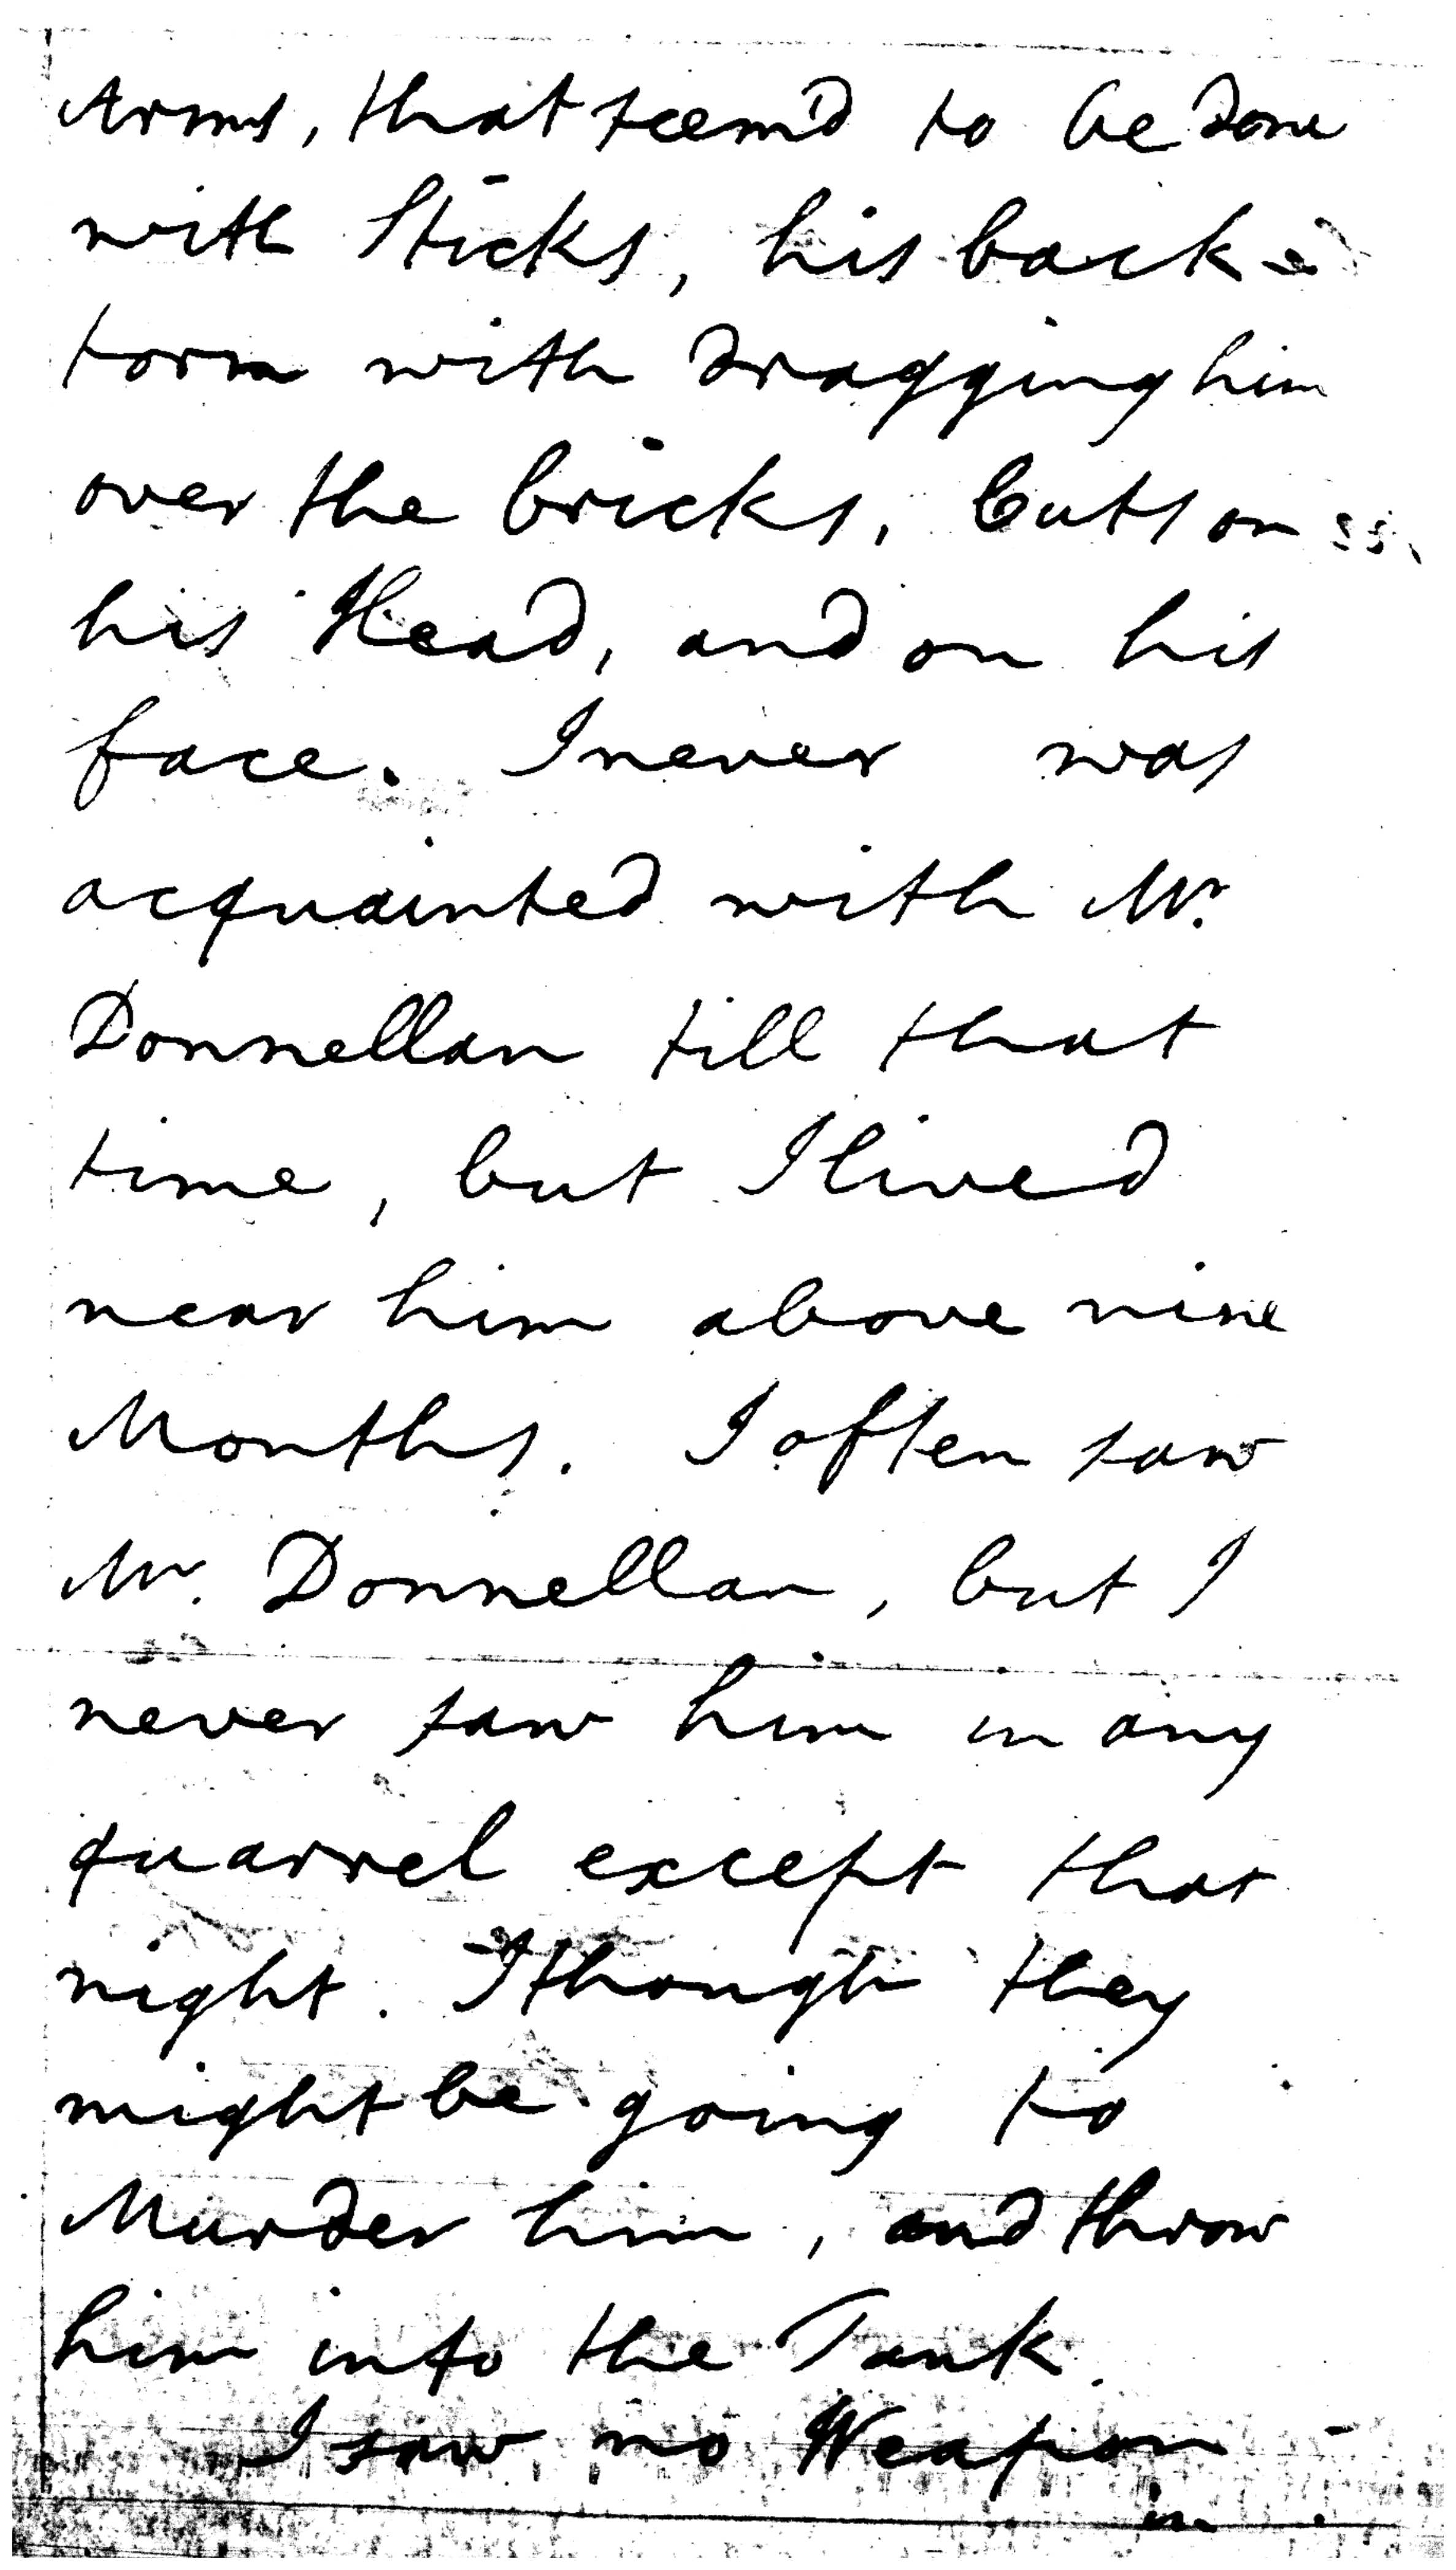 Arms, that seem'd to be done
with Sticks, his back
torn with dragging him
over the bricks, Cuts on
his Head, and on his
face. I never was
acquainted with Mr.
Donnellan till that
time, but I lived
near him above nine
Months. I often saw
Mr. Donnellan, but I
never saw him in any
quarrel except that
night. I though they
might be going to
Murder him, and throw
him into the Tank.
I saw no Weapon
in